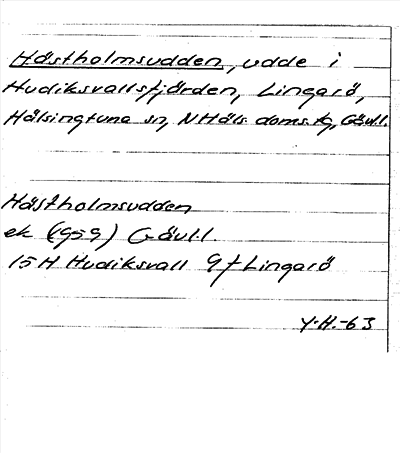 Hästholmsudden, udde i
Hudiksvallsfjärden, Lingarö,
Hälsingtuna sn, N Häls. doms. tg, Gävl.
Hästholmsudden
ek (1959) Gävl.
15H Hudiksvall 9f Lingarö
Y.H.-63